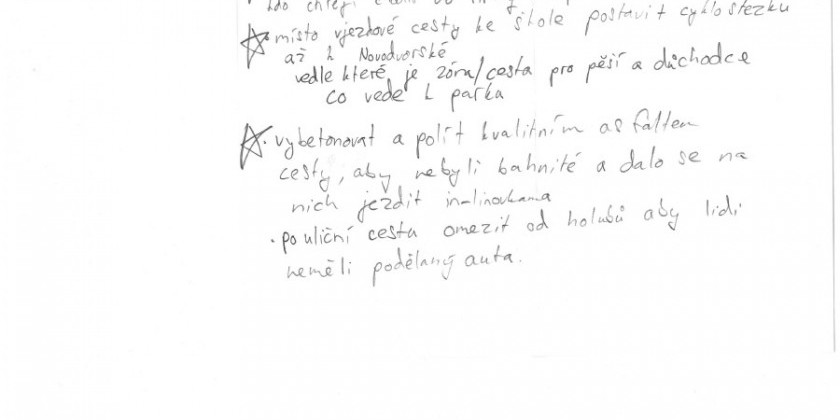 kdo chtějí
místo vjezdové cesty ke škole postavit cyklostezku
až k Novodvorské
vedle které je zóna/cesta pro pěší a důchodce
co vede k parka
vybetonovat a polít kvalitním asfaltem
cesty, aby nebyli bahnité a dalo se na
nich jezdit in-linovkama
· pouliční cesta omezit od holubů aby lidi
neměli podělaný auta.